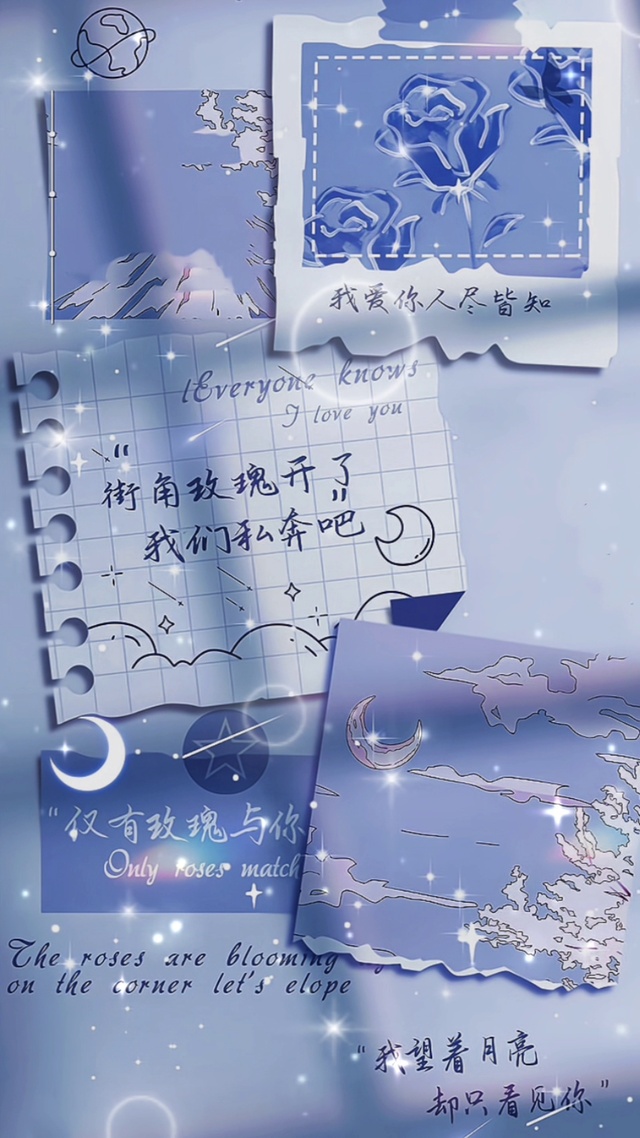 我爱你人尽皆知
Everyone knows
I love you
"街角玫瑰开了
我们私奔吧"
"仅有玫瑰与你
Only roses match
The roses are blooming
on the corner let's elope
"我望着月亮
却只看见你"